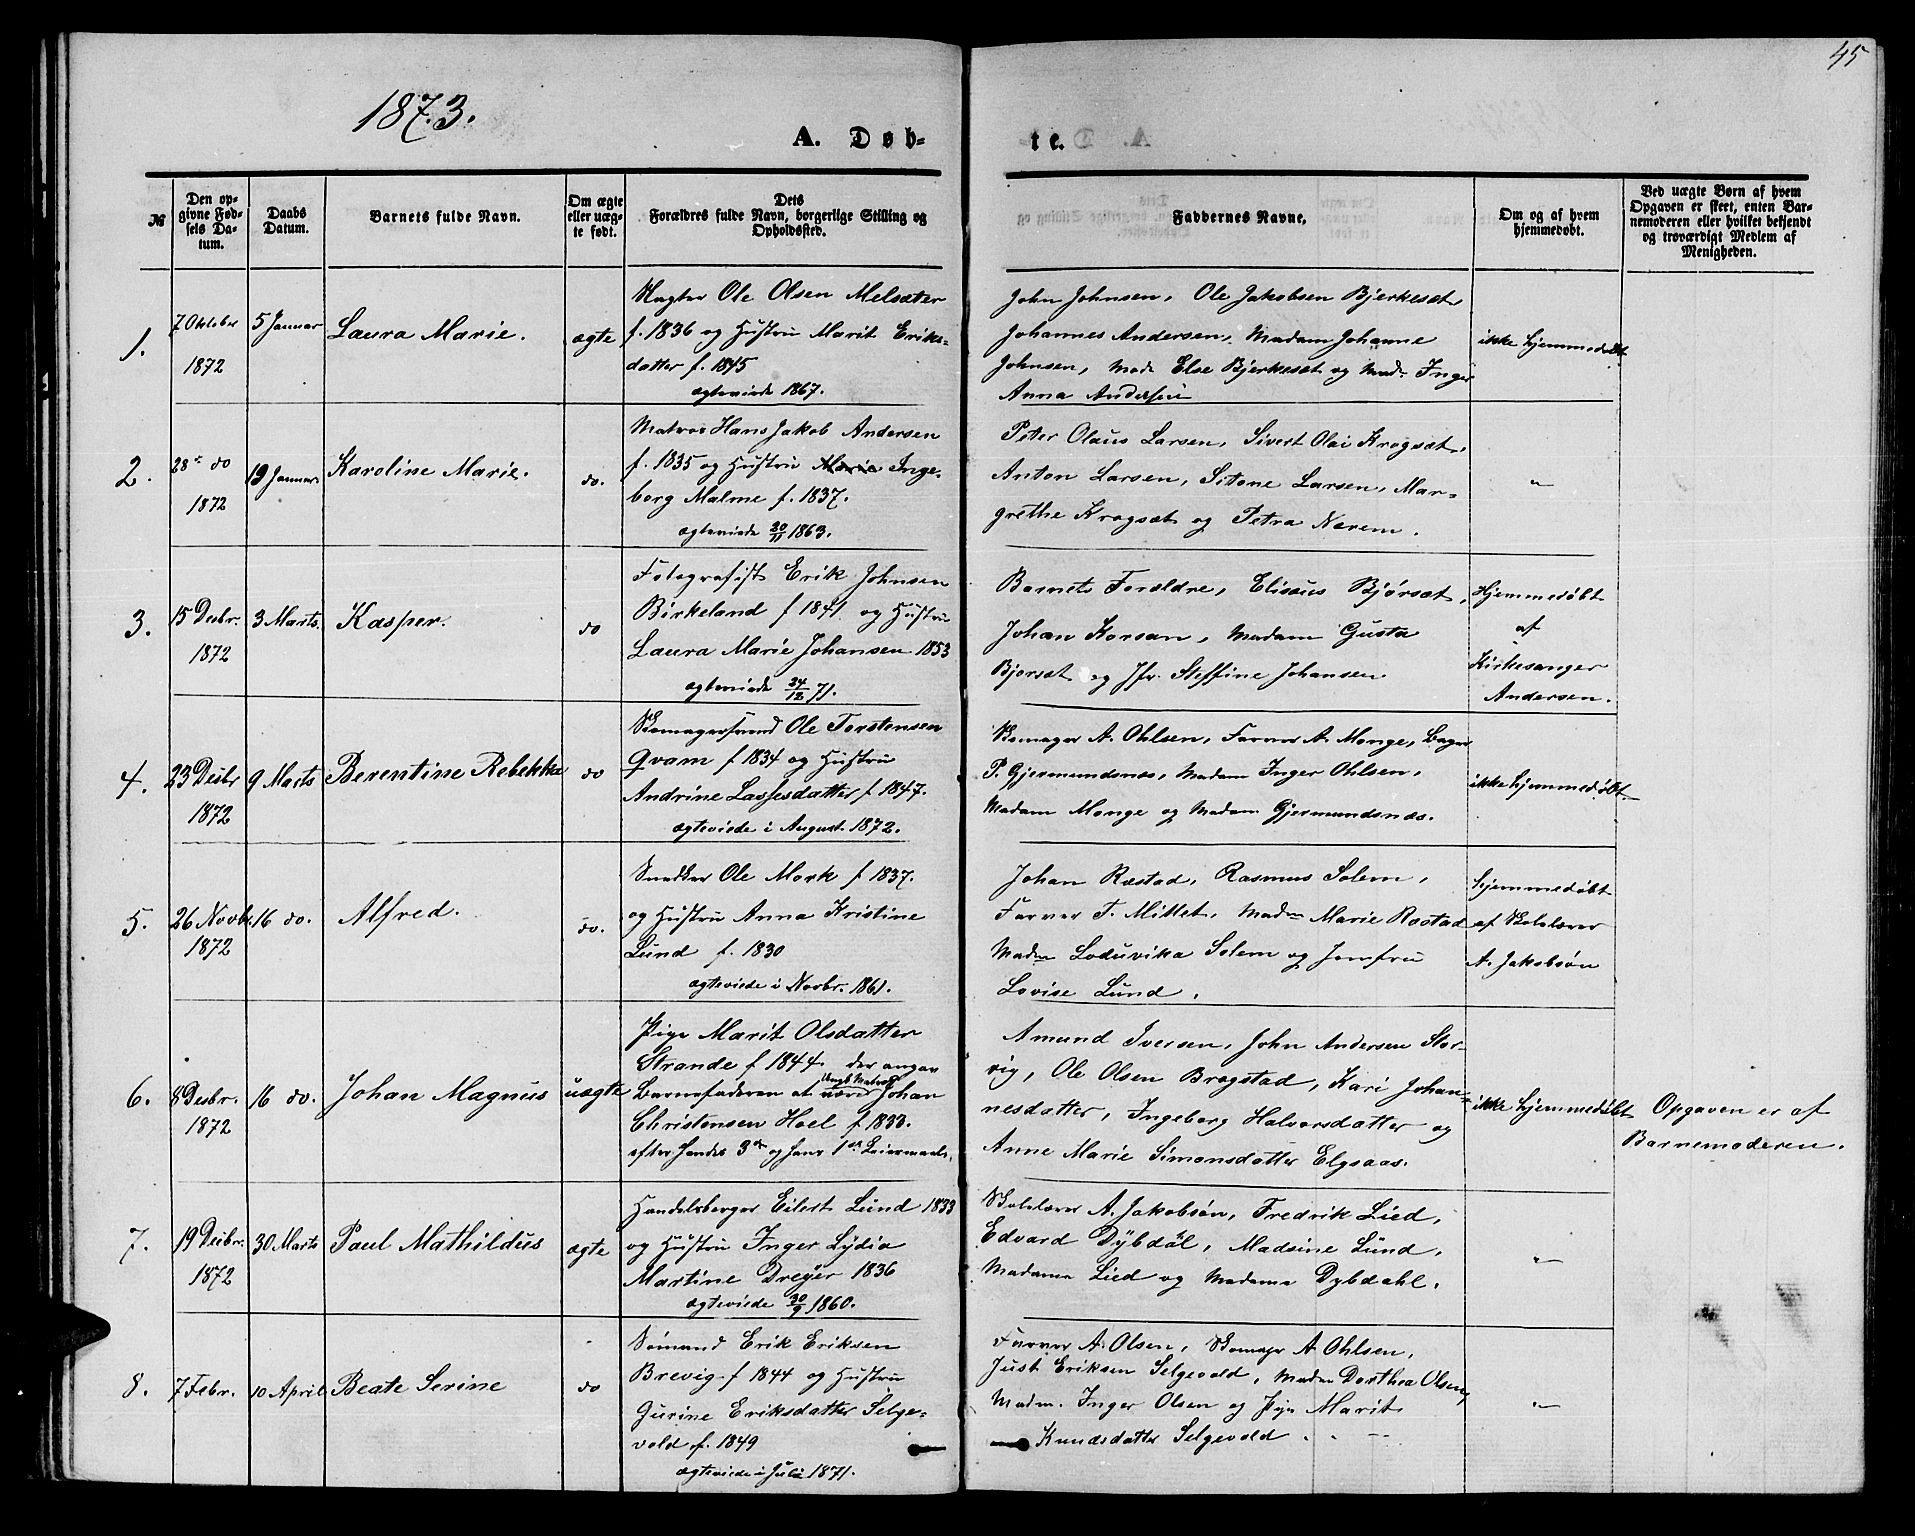 45
1873.
A. Døb-
te.
№
Den op-
givne Fød-
sels Da-
tum.
Daabs
Datum.
Barnets fulde Navn.
Om ægte
eller uæg-
te født.
Dets
Forældres fulde Navn, borgerlige Stilling og
Opholdssted.
Faddernes Navne,
Om og af hvem
hjemmedøbt.
Ved uægte Børn af hvem
Opgaven er skeet, enten Bar-
nemoderen eller hvilket bekjendt
og troværdigt Medlem af
Menigheden.
1.
7 Oktober
1872
5 Januar
Laura Marie.
ægte
Ole Olsen Melsæter
f. 1836 og Hustru Marit Eriks-
datter f. 1845
ægteviede 1867.
John Johnsen, Ole Jakobsen Bjerkesæt,
Johannes Andersen, Madam Johanne
Johnsen, Mad. Else Bjerkesæt og Mad. Inger
Anna Andersen
ikke hjemmedøbt
2.
28de do
1872
19 Januar.
Karoline Marie.
do.
Matros Hans Jakob Andersen
f. 1835 og Hustru Marie Inge-
borg Malme f. 1837.
ægteviede 20/11 1863.
Peter Olaus Larsen, Sivert Olai Krogsæt,
Anton Larsen, Sitone Larsen, Mar-
grethe Krogsæt og Petra Nerem.
"
3.
15 Desbr.
1872
3 Marts.
Kasper.
do
Fotografist Erik Johnsen
Birkeland f 1841 og Hustru
Laura Marie Johansen 1853
ægteviede 24/12 71.
Barnets Forældre, Elisæus Bjørsæt,
Johan Korsan, Madam Gusta
Bjørsæt og Jfr. Steffine Johansen
Hjemmedøbt
af
Kirkesanger
Andersen.
4.
23 Desbr
1872
9 Marts
Berentine Rebekka
do
Skomagersvend Ole Torstensen
Qvam f 1834 og Hustru
Andrine Lassesdatter f 1847.
ægteviede i August 1872.
Skomager A. Ohlsen, Farver A. Monge, Bager
P. Gjermundsnæs, Madam Inger Ohlsen,
Madam Monge og Madam Gjermundsnæs.
ikke hjemmedøbt
5.
26 Novbr.
1872
16 do.
Alfred.
do.
Snedker Ole Mork f 1837.
og Hustru Anna Kristine
Lund f. 1830
ægteviede i Novbr. 1861.
Johan Ræstad, Rasmus Solem,
Farver T. Mittet, Madm Marie Rostad
Madm Loduvika Solem og Jomfru
Lovise Lund.
Hjemmedøbt
af Skolelærer
A. Jakobsøn
6.
8 Desbr.
1872
16 do.
Johan Magnus
uægte
Pige Marit Olsdatter
Strande f 1844. der angav
Ungk. Matros
Barnefaderen at være Johan
Christensen Hoel f 1833.
efter hendes 3die og hans 1ste Leiermaal.
Amund Iversen, John Andersen Stor-
vig, Ole Olsen Bragstad, Kari Johan-
nesdatter, Ingeborg Halvorsdatter og
Anne Marie Simonsdatter Elgsaas.
ikke hjemmedøbt
Opgaven er af
Barnemoderen.
7.
19 Desbr.
1872
30 Marts
Paul Mathildus
ægte
Handelsborger Eilert Lund 1833
og Hustru Inger Lydia
Martine Dreyer 1836
ægteviede 30/9 1860.
Skolelærer A. Jakobsøn, Fredrik Lied,
Edvard Dybdal, Madsine Lund,
Madame Lied og Madame Dybdahl.
"
8.
7 Febr.
10 April
Beate Serine
do
Sømand Erik Eriksen
Brevig f 1844 og Hustru
Gurine Eriksdatter Selge-
vold f. 1849
ægteviede i Juli 1871.
Farver A. Olsen, Skomager A Ohlsen,
Just Eriksen Selgevold, Madm Dorthea Olsen,
Madm. Inger Olsen og Pige Marit
Knudsdatter Selgevold.
"